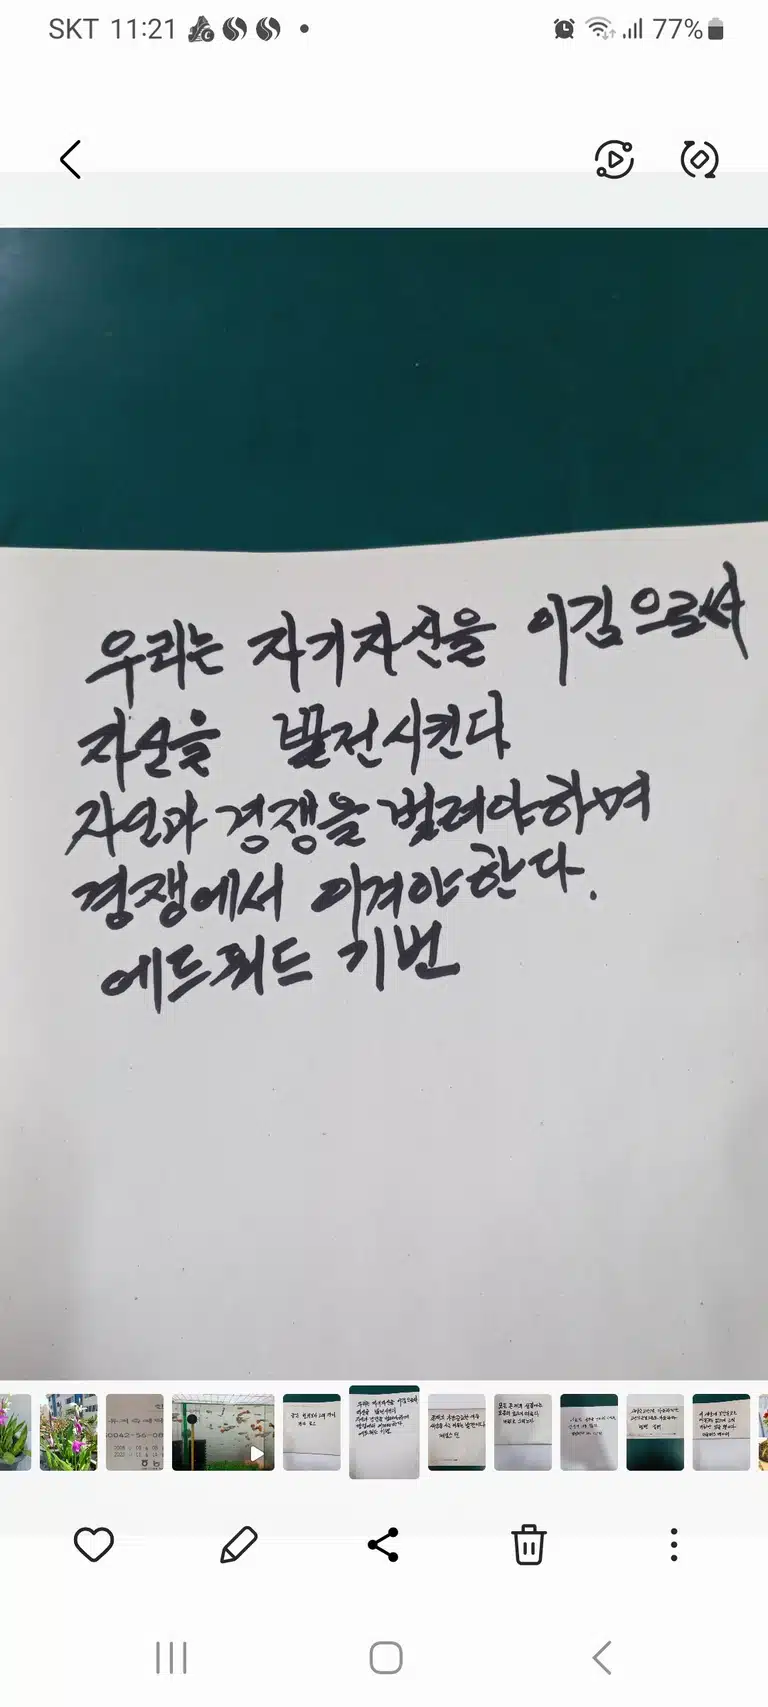 SKT 11:21
77%
우리는 자기자신을 이김으로써
자신을 발전시킨다
자신과 경쟁을 벌려야하며
경쟁에서 이겨야한다.
에드워드 기번